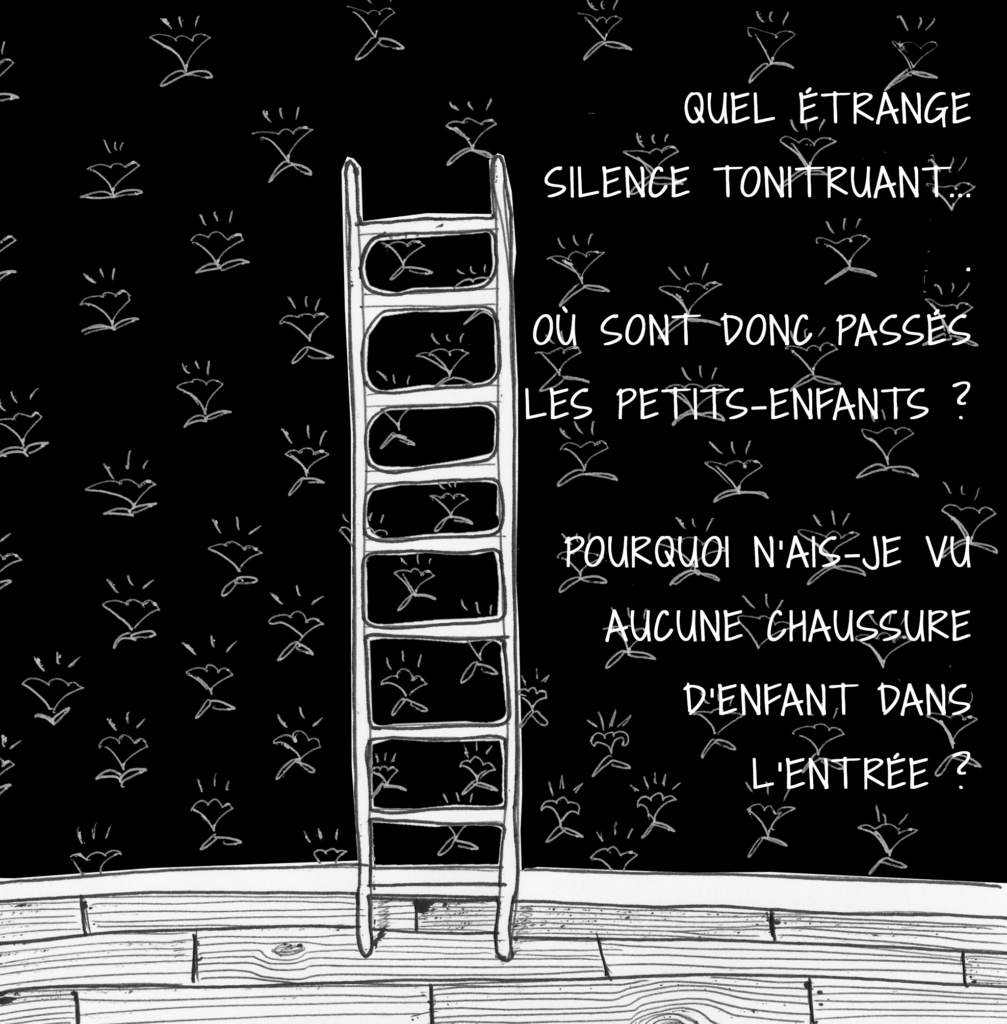 QUEL ÉTRANGE
SILENCE TONITRUANT...
.
OÙ SONT DONC PASSÉS
LES PETITS-ENFANTS ?
POURQUOI N'AIS-JE VU
AUCUNE CHAUSSURE
D'ENFANT DANS
L'ENTRÉE ?